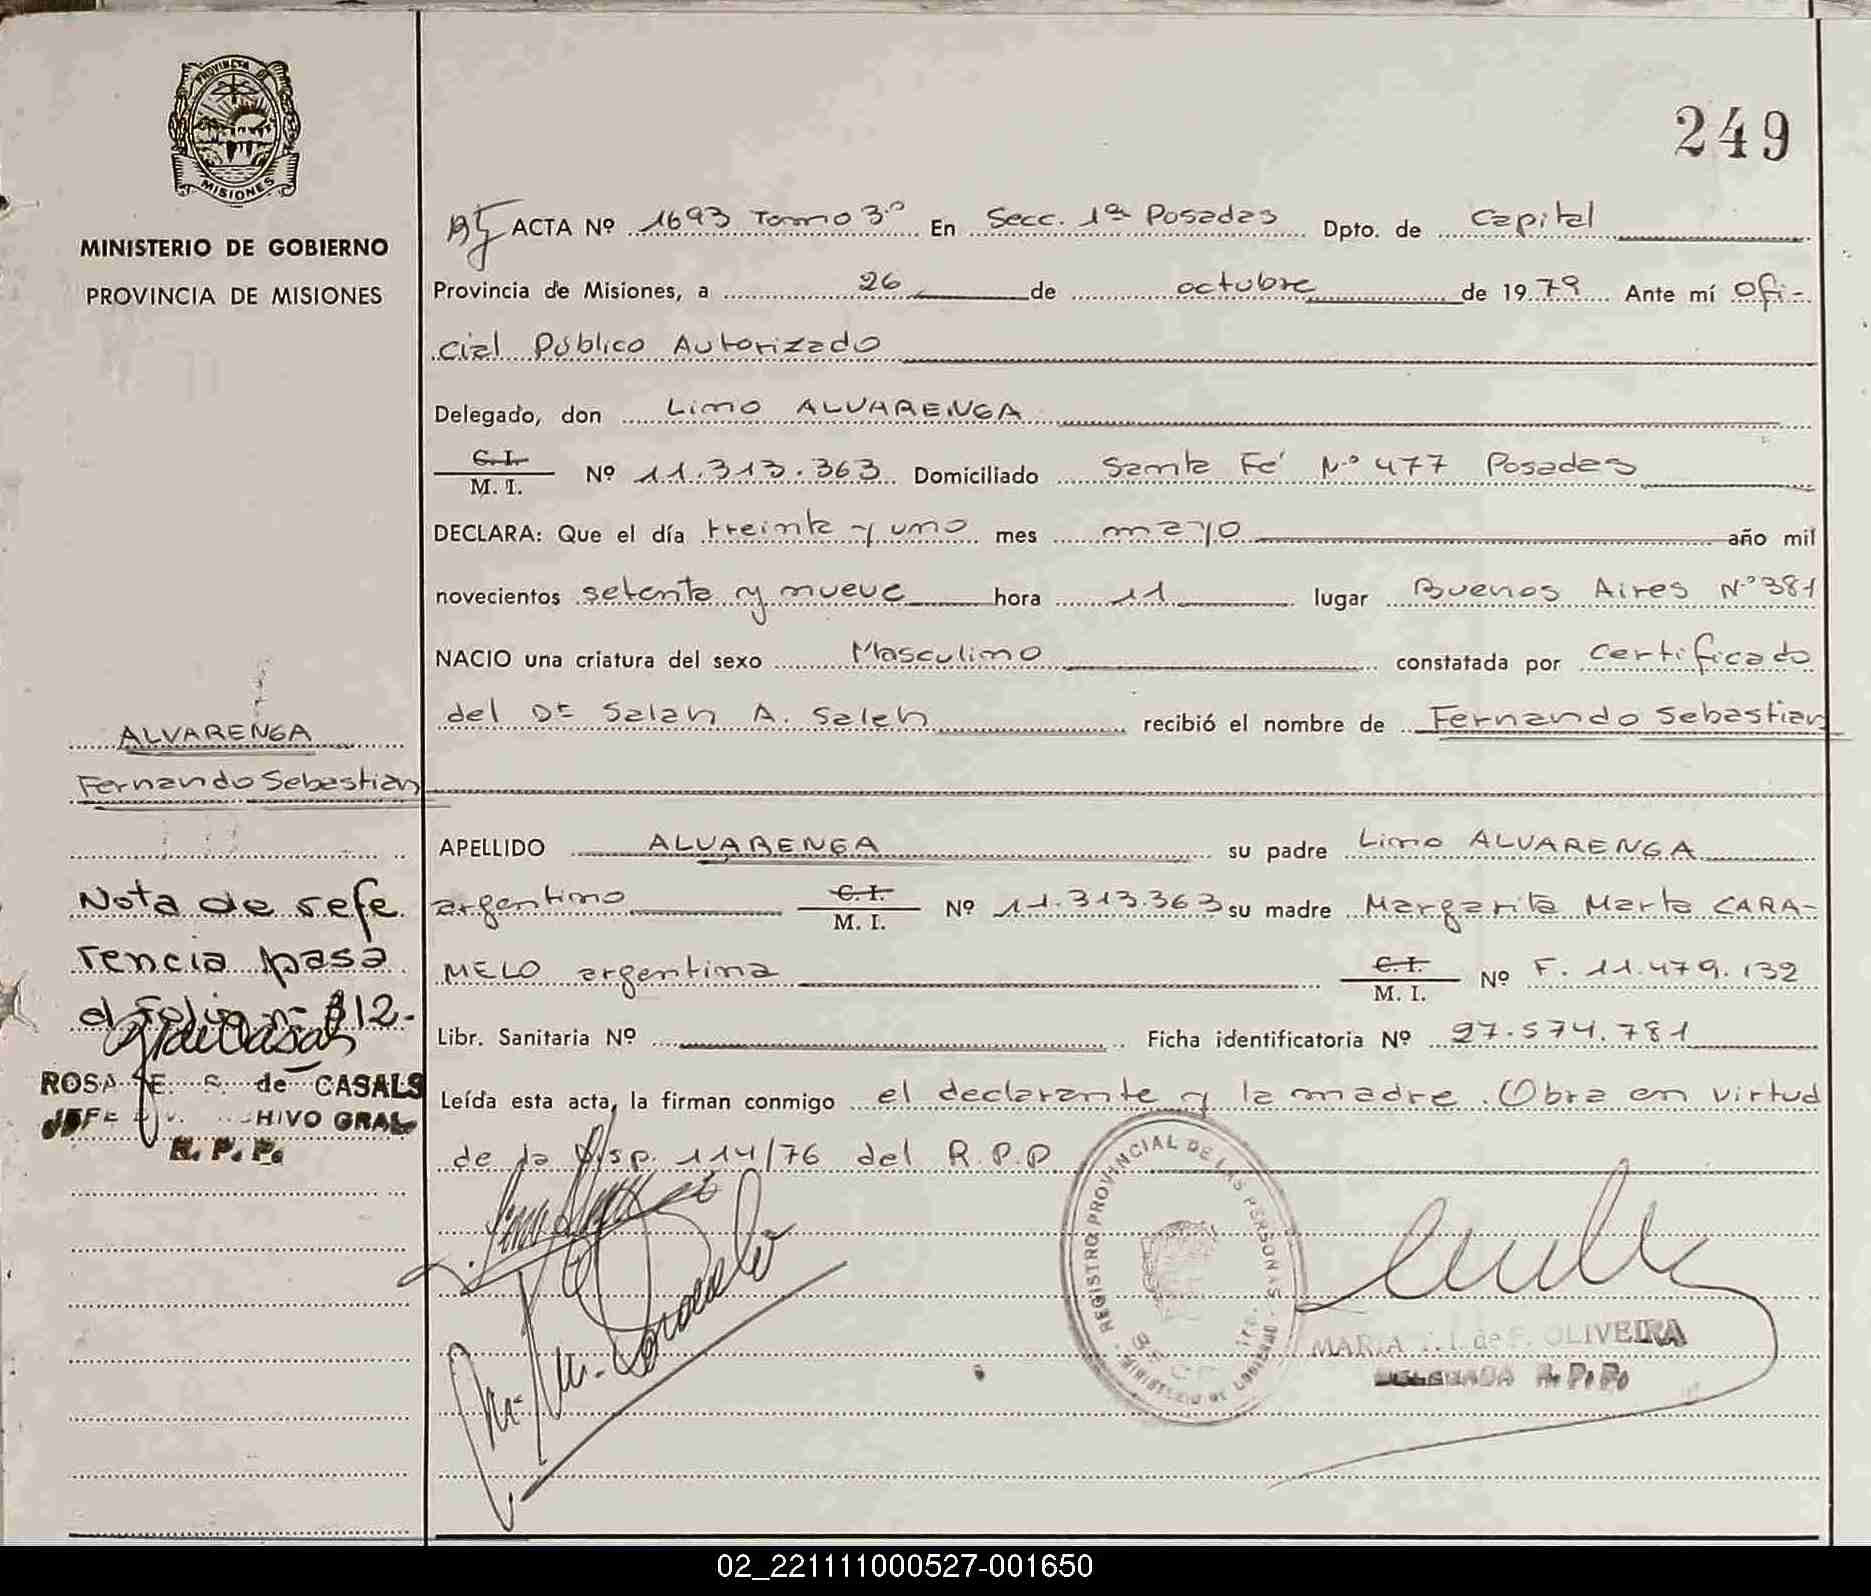 PROVINCIA DE
MISIONES
MINISTERIO DE GOBIERNO
PROVINCIA DE MISIONES
249
ACTA Nº 1693 Tomo 3º En Secc. 1ª Posadas Dpto. de Capital
Provincia de Misiones, a 26 de octubre de 1979 Ante mí Ofi-
cial Público Autorizado
Delegado, don Limo ALVARENGA
C. I.
M. I. Nº 11.313.363 Domiciliado Santa Fé Nº 477 Posadas
DECLARA: Que el día treinta y uno mes mayo año mil
novecientos setenta y nueve hora 11 lugar Buenos Aires Nº 381
NACIO una criatura del sexo Masculino constatada por certificado
del Dr Salah A. Saleh recibió el nombre de Fernando Sebastian
APELLIDO ALVARENGA su padre Limo ALVARENGA
argentino C. I.
M. I. Nº 11.313.363 su madre Margarita Marta CARA-
MELO argentina C. I.
M. I. Nº F. 11.479.132
Libr. Sanitaria Nº Ficha identificatoria Nº 27.574.781
Leída esta acta, la firman conmigo el declarante y la madre. Obra en virtud
de la Disp. 114/76 del R.P.P
ALVARENGA
Fernando Sebastian
Nota de refe
rencia pasa
al folio nº 312-
ROSA E. S. de CASALS
JEFE HIVO GRAL
R. P. P.
REGISTRO PROVINCIAL DE LAS PERSONAS
MINISTERIO DE GOBIERNO
MARIA de F. OLIVEIRA
DELEGADA R. P. P.
02_221111000527-001650